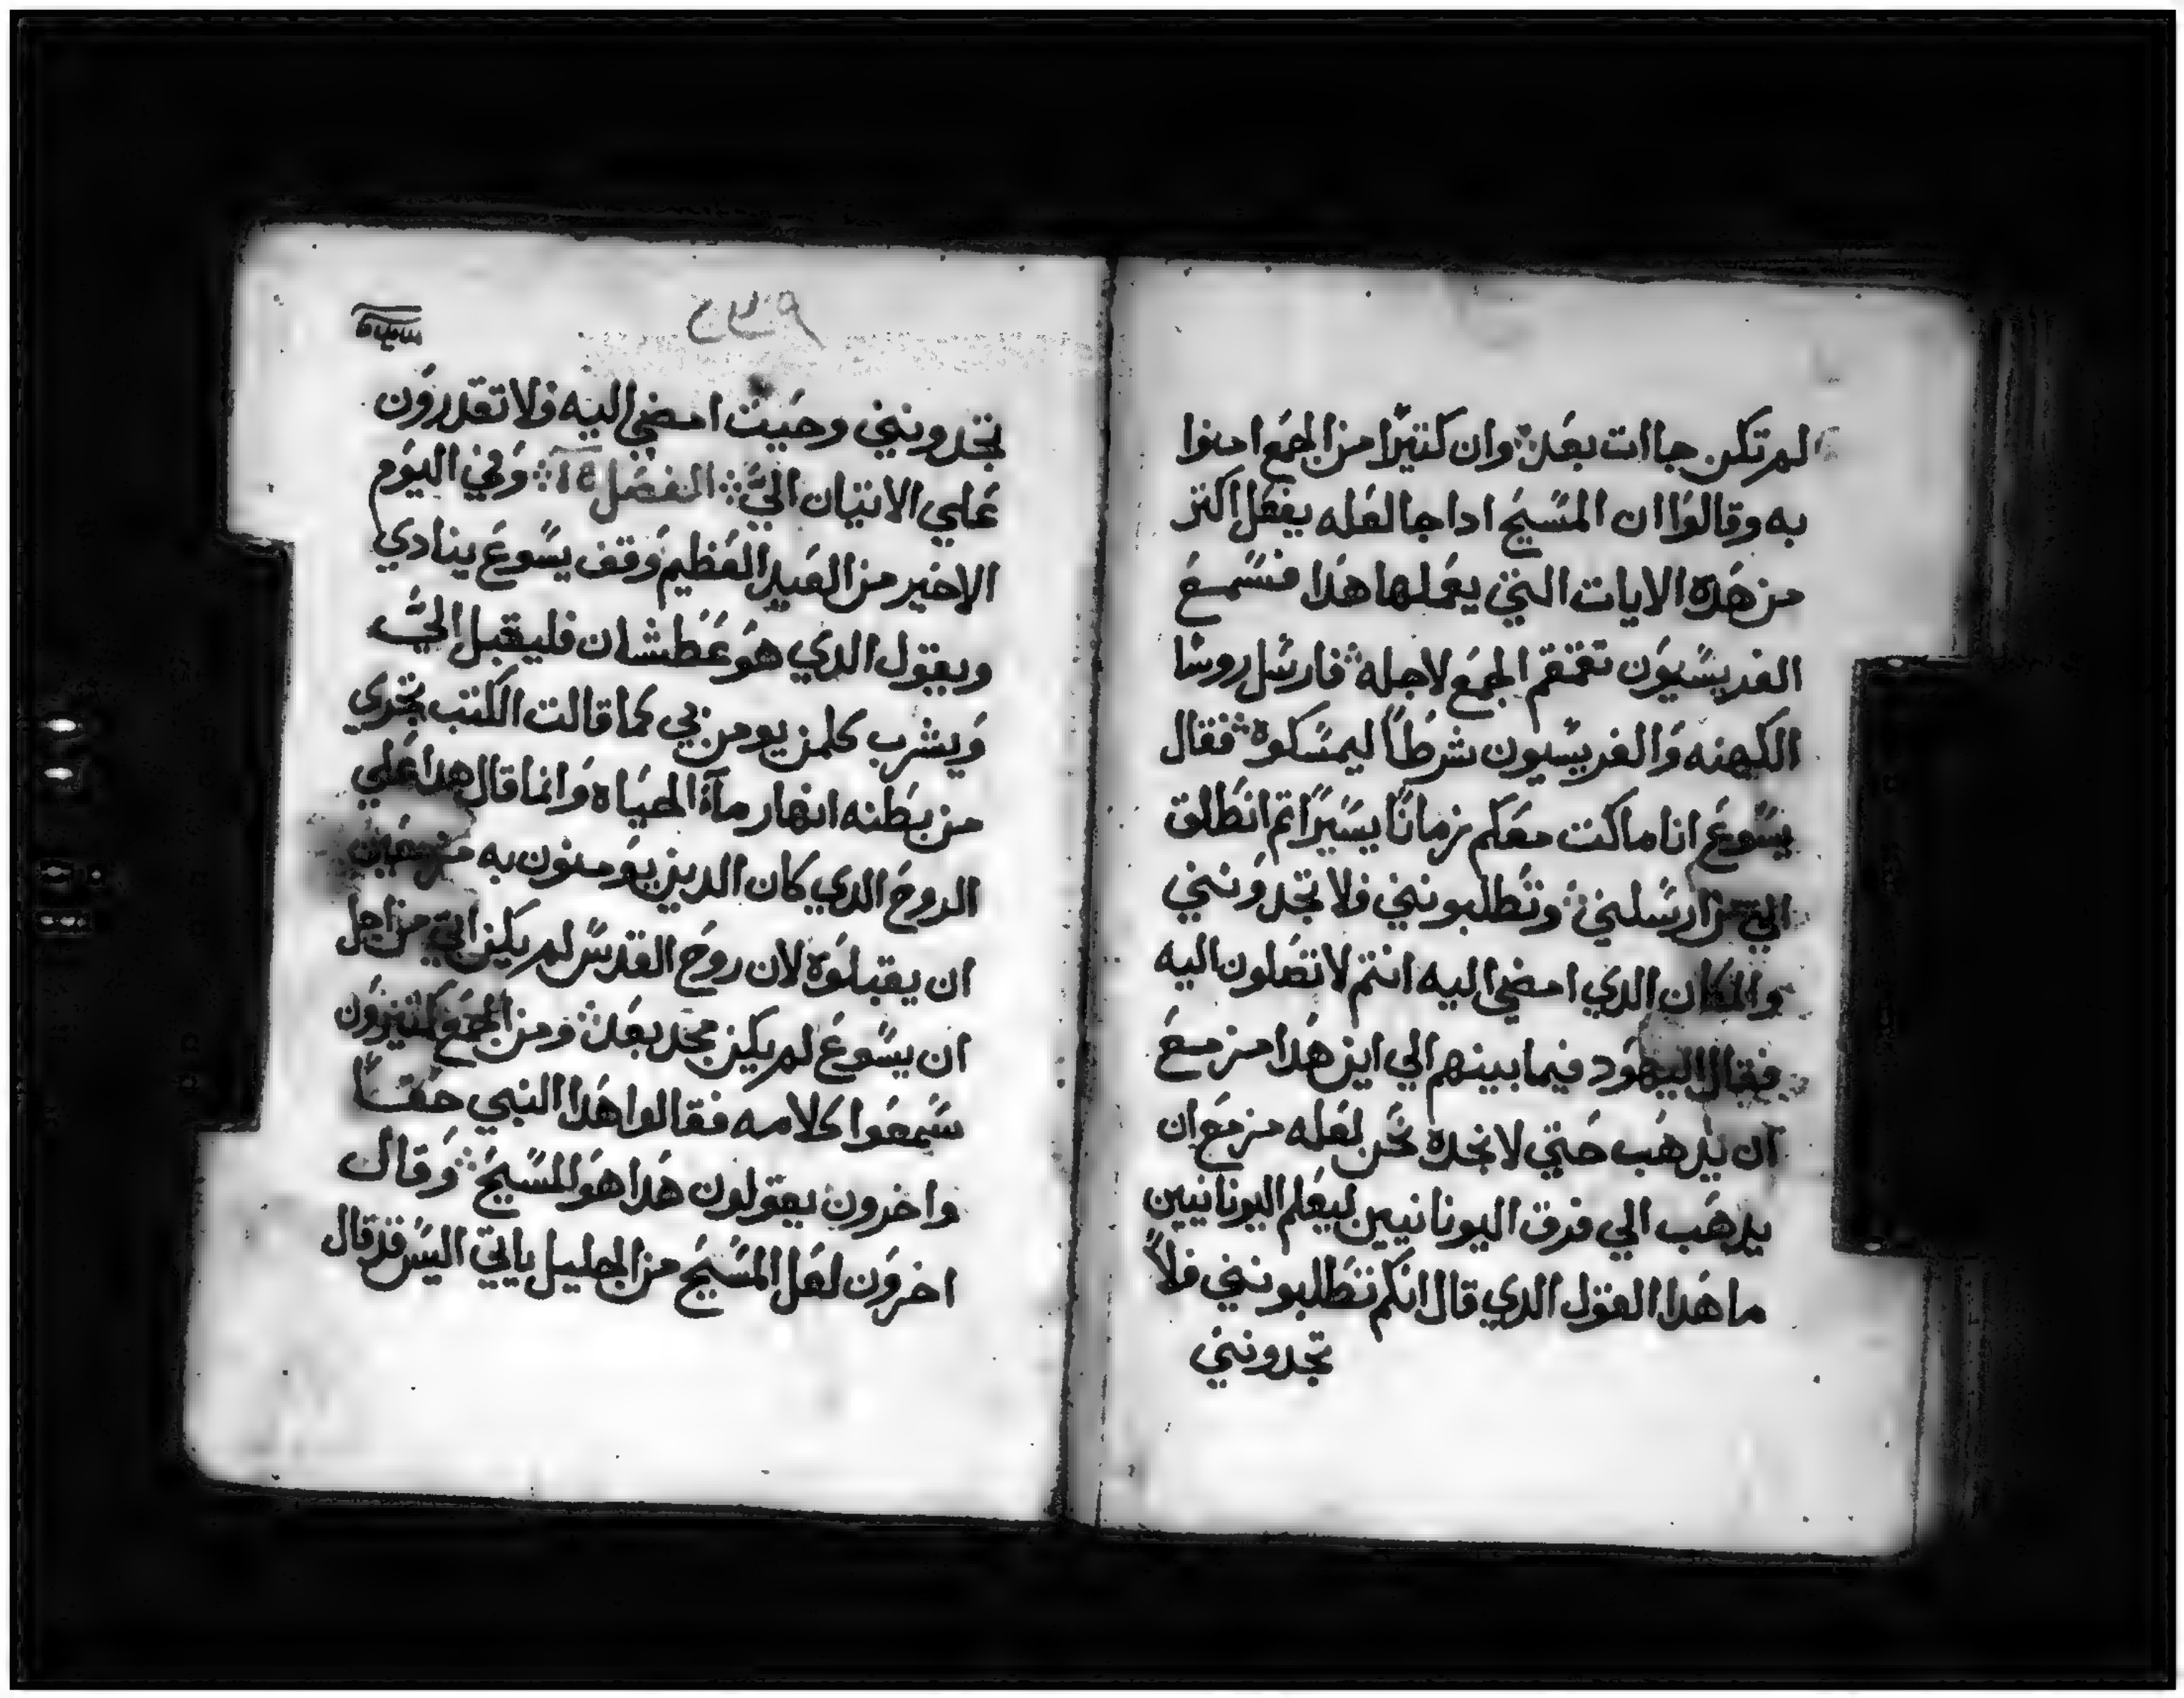 لم تكن جاات بعد وان كثيرًا من الجمع امنوا
به وقالوا ان المسيح ادا جا لعله يفعل اكتر
من هده الايات التي يعملها هدا فسمع
الفريسيون تقمقم الجمع لاجله فارسل روسا
الكهنه والفريسيون شرطًا ليمسكوه فقال
يسوع انا ماكث معكم زمانًا يسيرًا تم انطلق
الي من ارسلني وتطلبونني فلا تجدونني
والمكان الدي امضي اليه انتم لا تصلون اليه
فقال اليهود فيما بينهم الي اين هدا مزمع
ان يدهب حتي لا نجده نحن لعله مزمع ان
يدهب الي فرق اليونانيين ليعلم اليونانيين
ما هدا القول الدي قال انكم تطلبونني فلا
تجدونني
تجدونني وحيث امضي اليه فلا تقدرون
علي الاتيان الي الفصل وفي اليوم
الاخير من العيد العظيم وقف يسوع ينادي
ويقول الدي هو عطشان فليقبل الي
ويشرب كلمن يومن بي كما قالت الكتب تجري
من بطنه انهار مآء الحياه وانما قال هدا علي
الروح الدي كان الدين يومنون به مزمعين
ان يقبلوه لان روح القدس لم يكن اتي من اجل
ان يسوع لم يكن مجد بعد ومن الجمع كثيرون
سمعوا كلامه فقالوا هدا النبي حقًا
واخرون يقولون هدا هو المسيح وقال
اخرون لعل المسيح من الجليل ياتي اليس قد قال